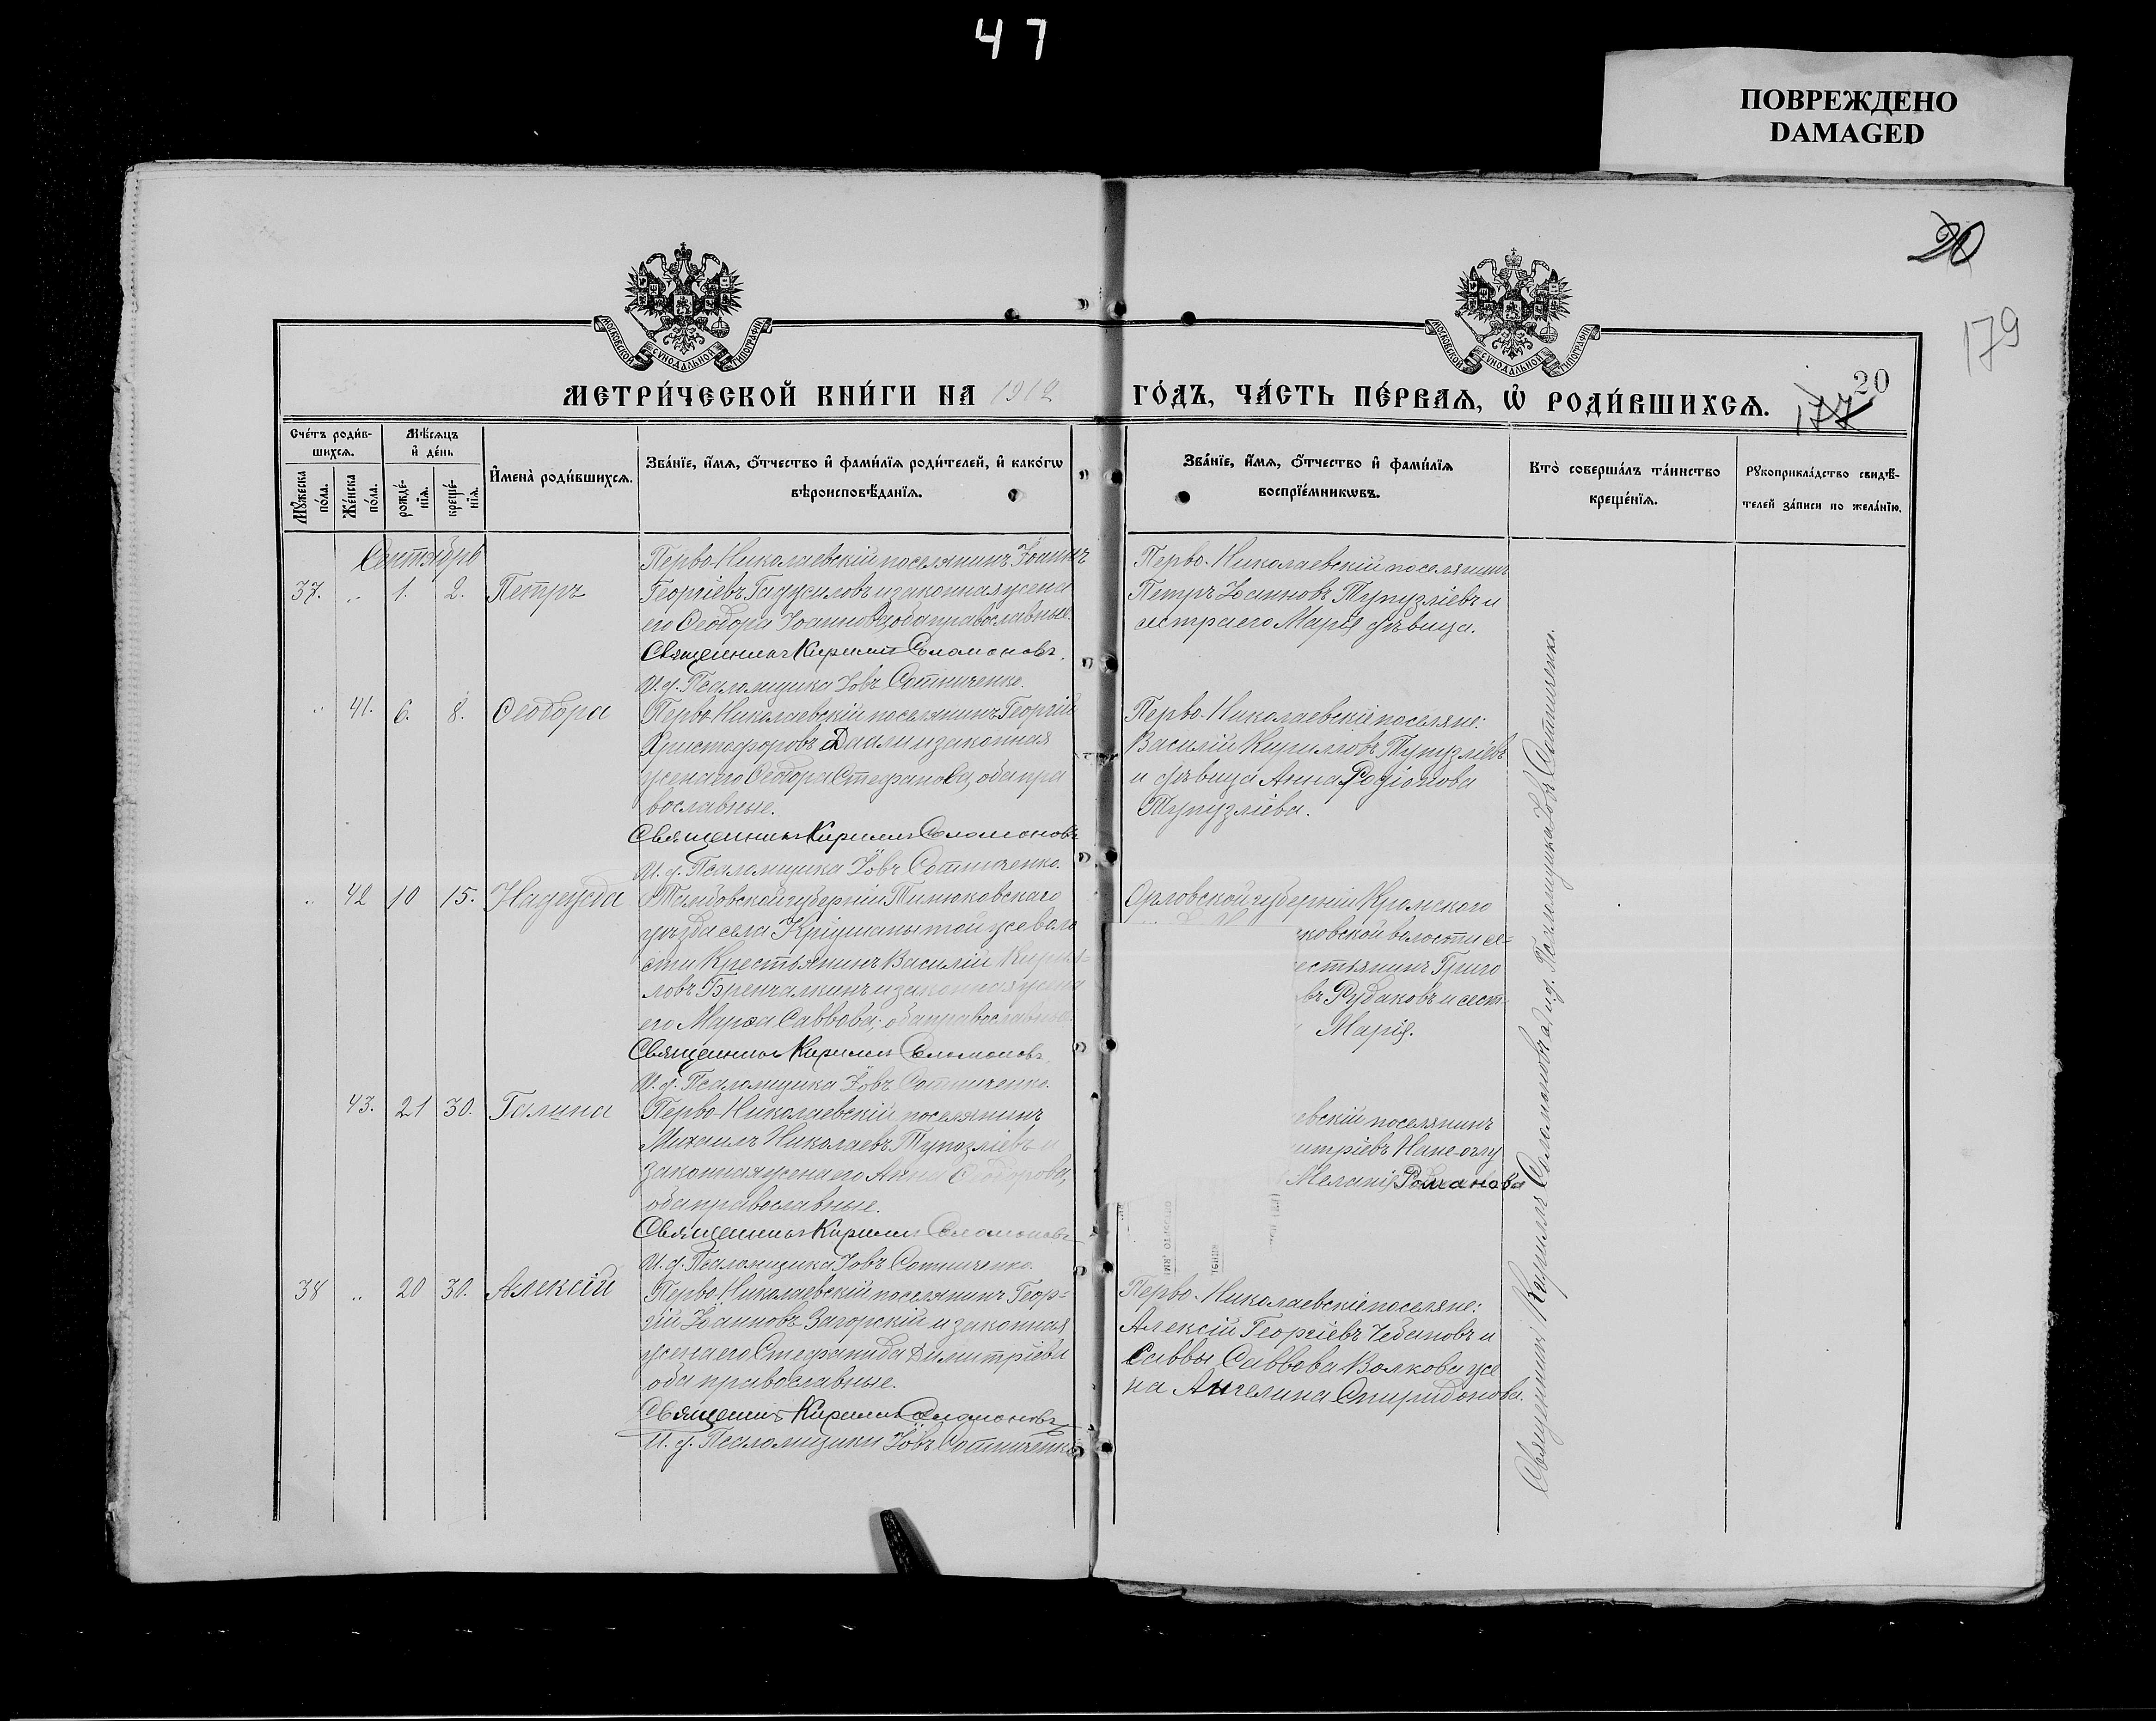 47
ПОВРЕЖДЕНО
DAMAGED
20
179
МОСКОВСКОЙ СѴНОДАЛЬНОЙ ТИПОГРАФІИ
МОСКОВСКОЙ СѴНОДАЛЬНОЙ ТИПОГРАФІИ
МЕТРИ́ЧЕСКОЙ КНИ́ГИ НА 1912 ГО́ДЪ, ЧА́СТЬ ПЕ́РВАѦ, Ѡ҆ РОДИ́ВШИХСѦ.
20
177
Сче́тъ роди́в-
шихсѧ.
Мѣ́сѧцъ
и҆ де́нь
Мꙋ́жеска
по́ла.
Же́нска
по́ла.
рожде́-
нїѧ.
креще́-
нїѧ.
И҆мена̀ роди́вшихсѧ.
Зва́нїе, и҆́мѧ, ѻ҆́тчество и҆ фами́лїѧ роди́телей, и҆ како́гѡ
вѣроисповѣ́данїѧ.
Зва́нїе, и҆́мѧ, ѻ҆́тчество и҆ фами́лїѧ
воспрїе́мникѡвъ.
Кто̀ соверша́лъ та́инство
креще́нїѧ.
Рꙋкоприкла́дство свидѣ́-
телей за́писи по жела́нїю.
Сентябрь
37. „ 1. 2. Петръ
Перво-Николаевскій поселянинъ Іоаннъ
Георгіевъ Гадусиловъ и законная жена
его Ѳеодора Іоаннова, оба православные.
Священникъ Кириллъ Соломоновъ.
И. д. Псаломщика Іовъ Сотниченко.
Перво-Николаевскій поселянинъ
Петръ Іоанновъ Тупузліевъ и
сестра его Марія дѣвица.
„ 41. 6. 8. Ѳеодора
Перво-Николаевскій поселянинъ Георгій
Христофоровъ Даали и законная
жена его Ѳеодора Стефанова, оба пра
вославные.
Священникъ Кириллъ Соломоновъ
И. д. Псаломщика Іовъ Сотниченко.
Перво-Николаевскіе поселяне:
Василій Кирилловъ Тупузліевъ
и дѣвица Анна Родіонова
Тупузліева.
„ 42 10 15. Надежда
Тамбовской губерніи
уѣзда села той же воло
сти Крестьянинъ Василій Кирил-
ловъ Бренчалкинъ и законная жена
его Марѳа Саввова; оба православные.
Священникъ Кириллъ Соломоновъ.
И. д. Псаломщика Іовъ Сотниченко.
Орловской губерніи Кромского
ковской волости се-
естьянинъ Григо
въ Рудаковъ и сест-
Марія.
43. 21 30. Галина
Перво-Николаевскій поселянинъ
Михаилъ Николаевъ Тупозліевъ и
законная жена его Анна Ѳеодорова,
оба православные.
Священникъ Кириллъ Соломоновъ
И. д. Псаломщика Іовъ Сотниченко.
евскій поселянинъ
митріевъ Нане-оглу
Меланія Романова
38 „ 20 30. Алексій
Перво-Николаевскій поселянинъ Геор-
гій Іоанновъ Загорскій и законная
жена его Стефанида Димитріева
оба православные.
Священникъ Кириллъ Соломоновъ
И. д. Псаломщика Іовъ Сотниченко
Перво-Николаевскіе поселяне:
Алексій Георгіевъ Чебановъ и
Саввы Саввова Волкова же
на Ангелина Спиридонова.
Священникъ Кириллъ Соломоновъ и. д. Псаломщика Іовъ Сотниченко.